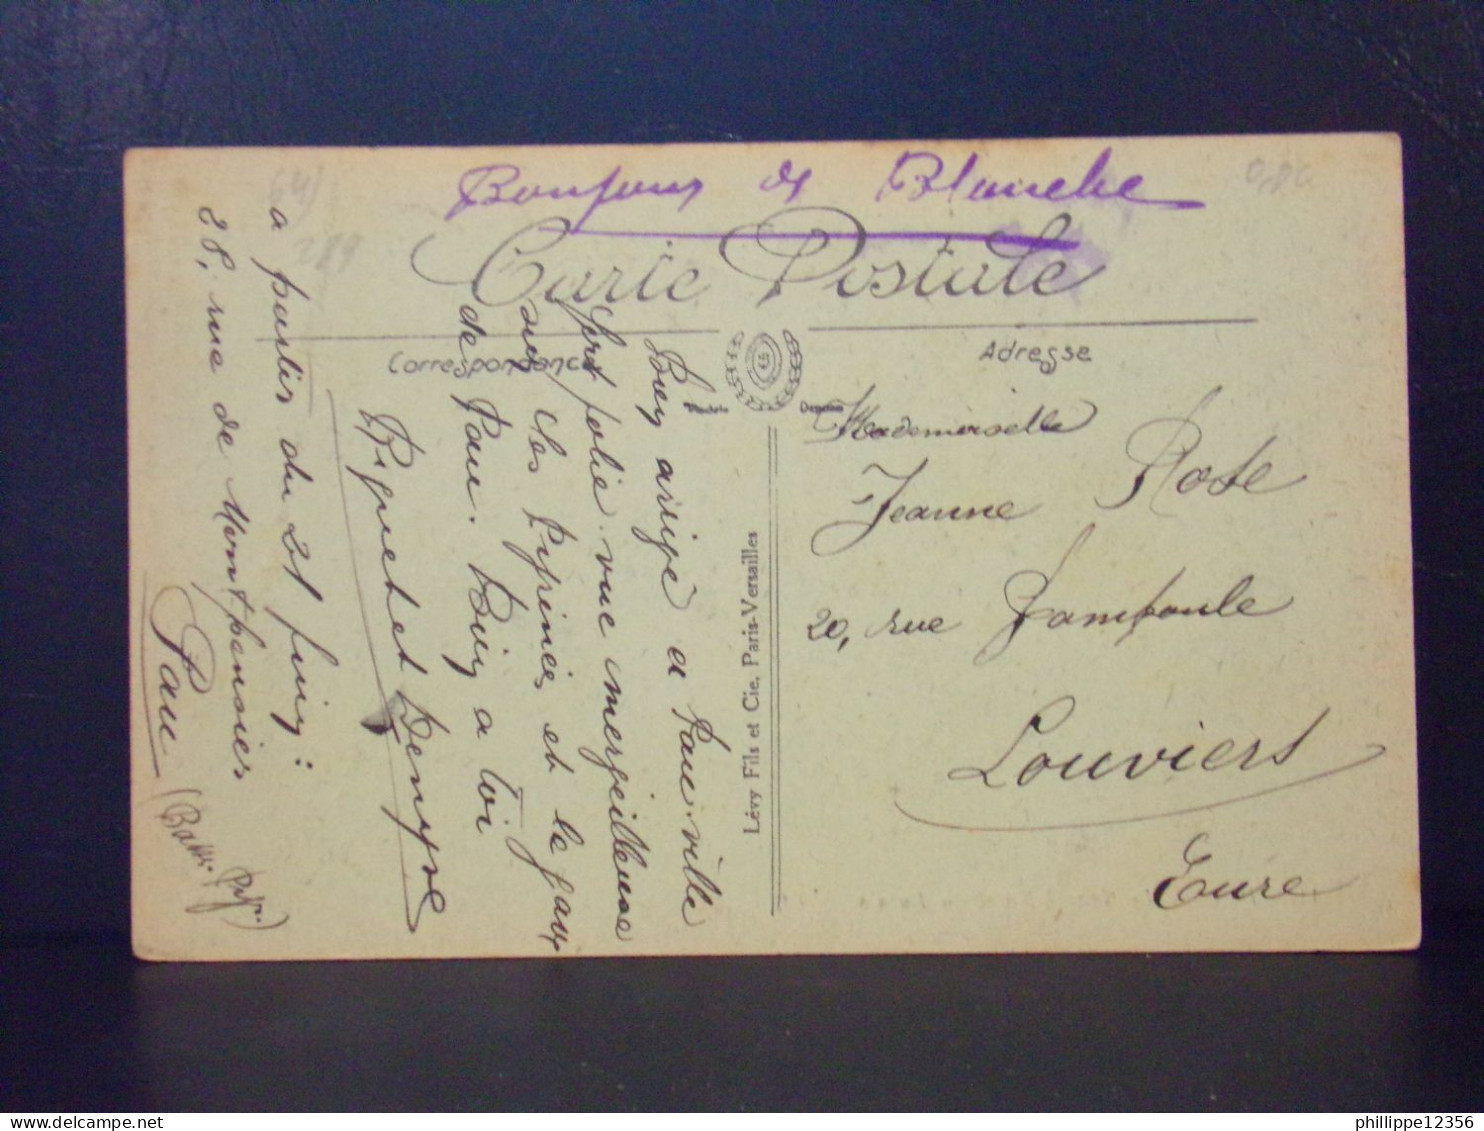 Bonjour de Blanche
Carte Postale
Correspondance
Adresse
Bien arrivé a Pau ville
fort jolie vue merveilleuse
sur les Pyrinées et le gave
de Pau. Bien a toi
Riquet et Denyse
a partir du 21 juin :
28, rue de Montpensier
Pau
(Basses Pyr.)
Lévy Fils et Cie, Paris-Versailles
Mademoiselle
Jeanne Rose
20, rue
Louviers
Eure
phillippe12356